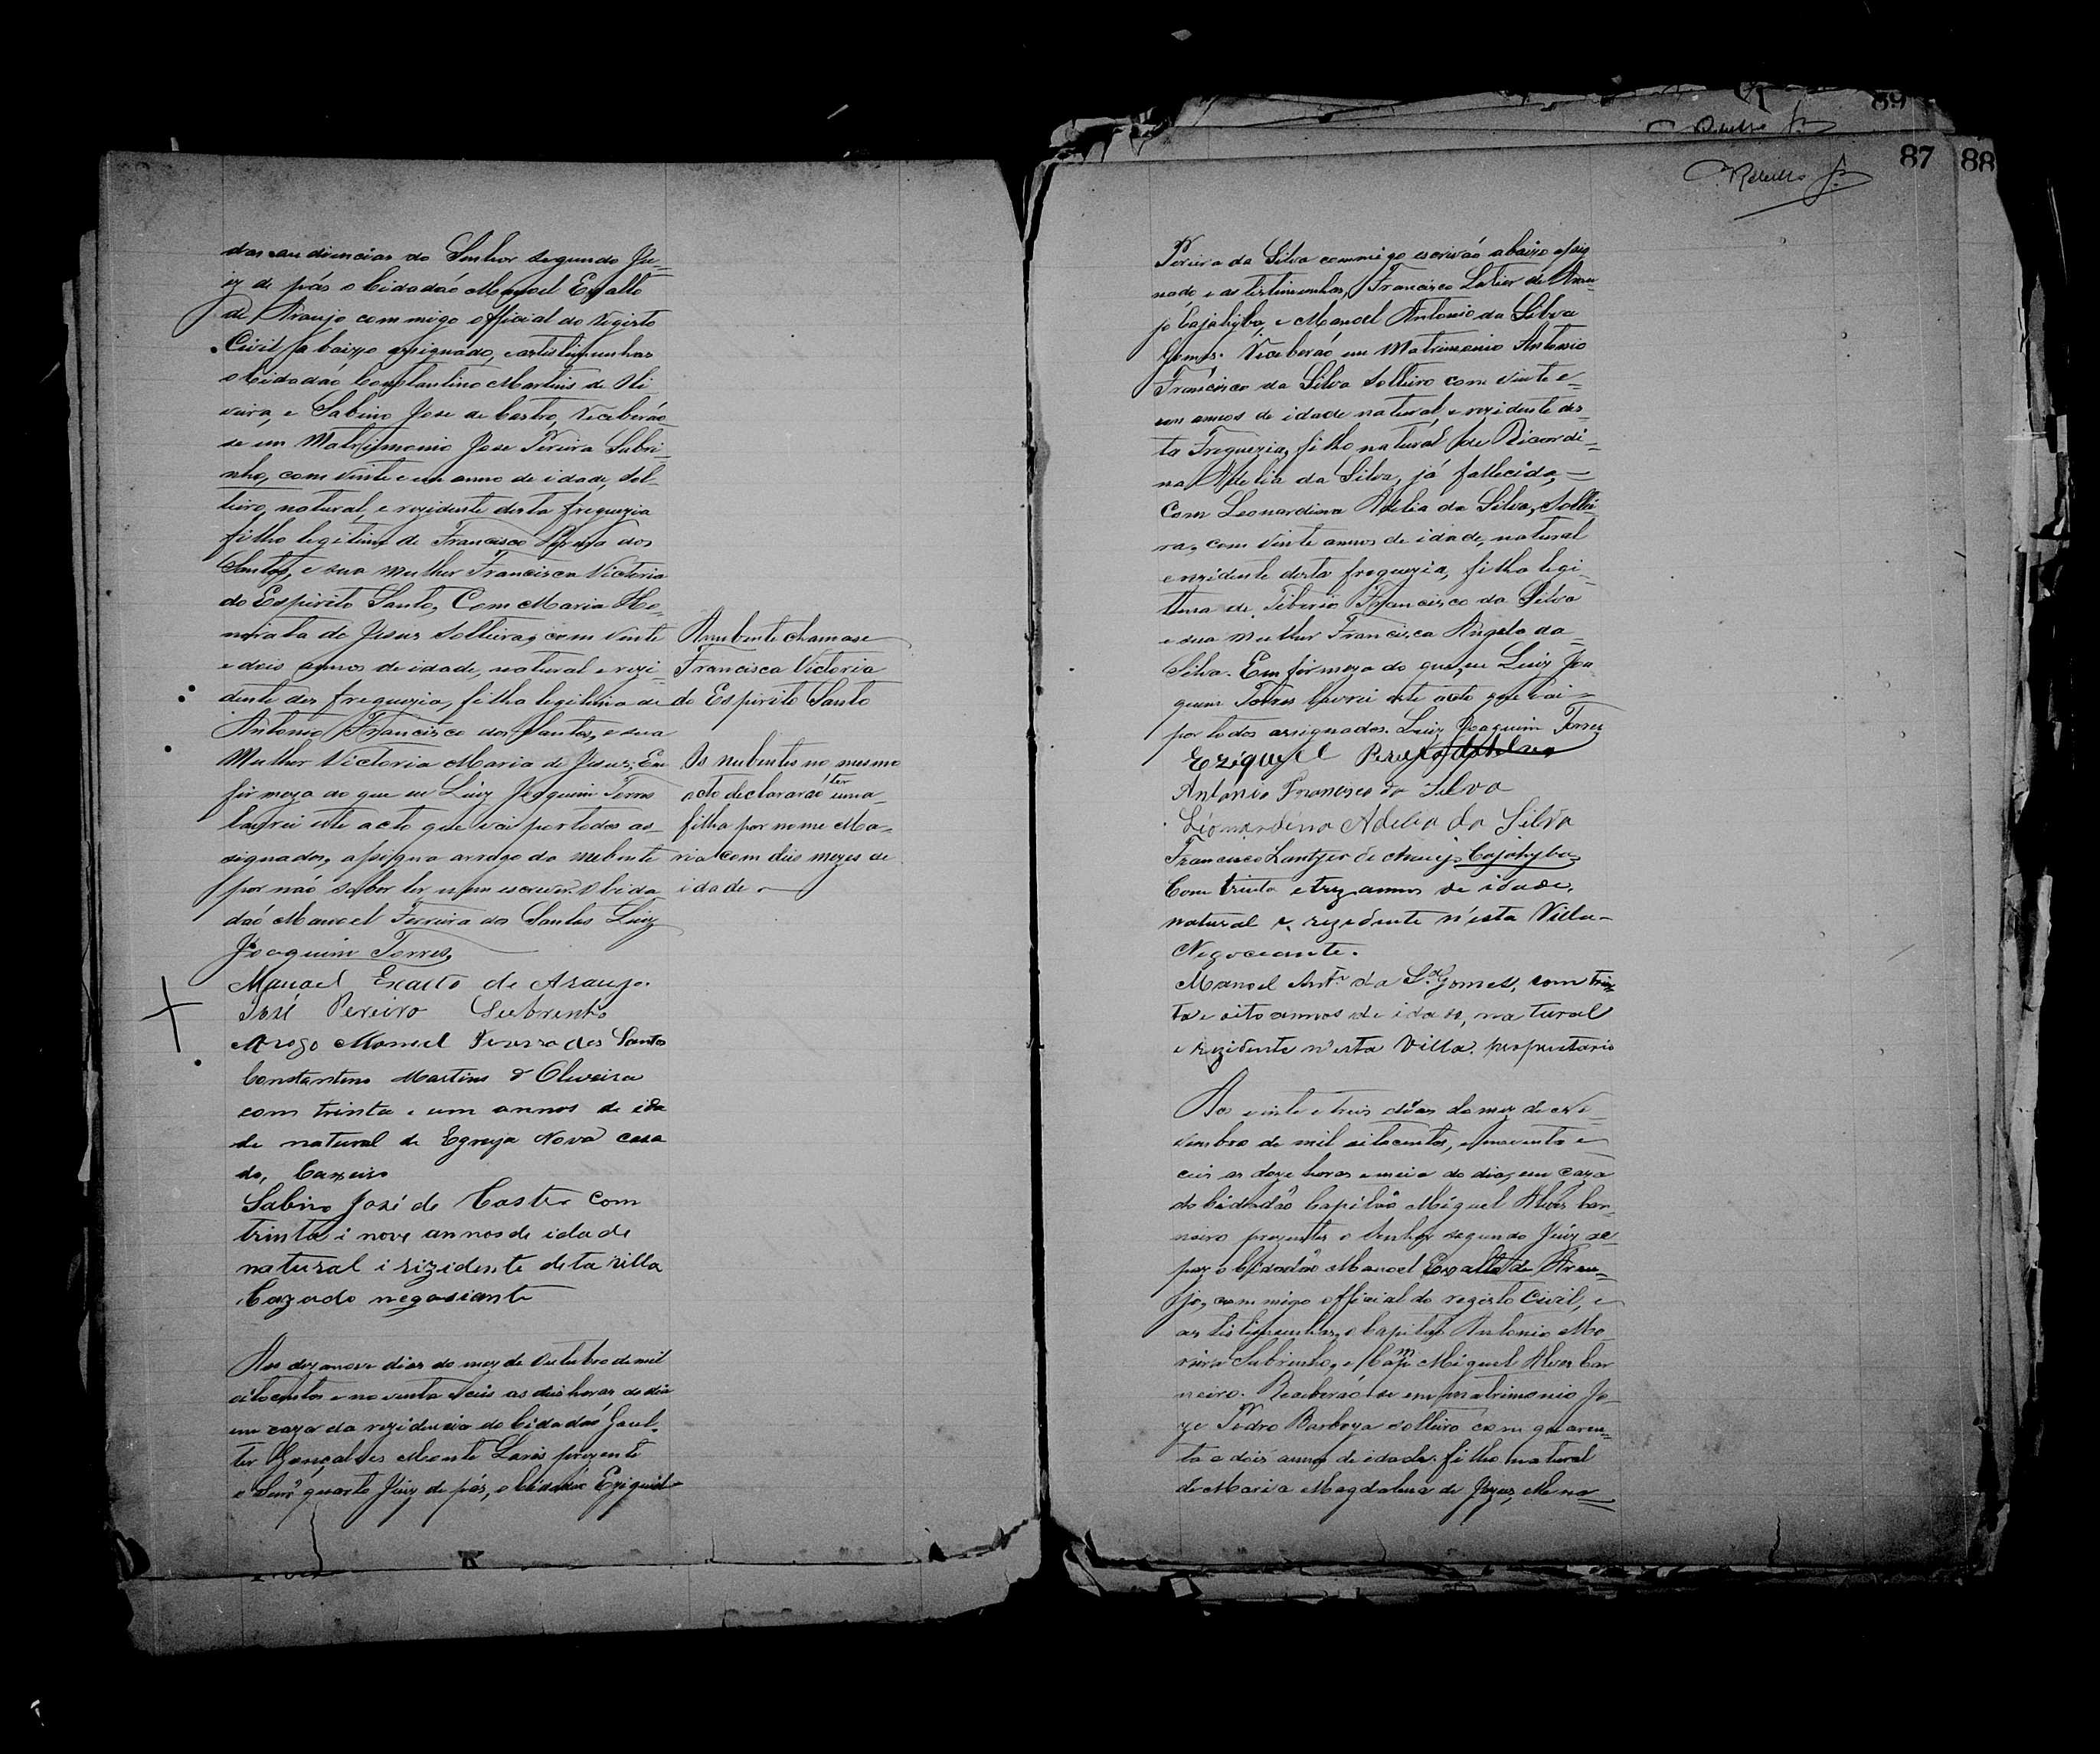 das audiencias do Senhor segundo Ju-
iz de pás o Cidadaó Manoel Exalto
de Araujo commigo official do Registo
Civil abaixo assignado, e as tistimunhas
o Cidadaó Constantino Martins de Oli
veira, e Sabino Jose de Castro, Receberáo
se em Matrimonio Jose Pereira Subri-
nho, com vinte e um anno de idade, Sol-
teiro, natural, e rezidente desta freguezia
filho legitimo de Francisco dos
Santos, e sua Mulher Francisca Victoria
do Espirito Santo, Com Maria Ho-
norata de Jesus Solteira, com vinte
e dois annos de idade, natural e rezi-
dente des freguezia, filha legitima de
Antonio Francisco dos Santos, e sua
Mulher Victoria Maria de Jesus; Em
firmeza do que eu Luiz Joaquim Torres
lavrei este acto que vai por todos as-
signados, assigna arrogo da nubente
por naó saber ler nem escrever o Cida
daó Manoel Ferreira dos Santos Luiz
Joaquim Torres
Manoel Exalto de Araujo.
José Pereiro Subrinho
Arogo Manuel Ferera dos Santos
Constantino Martins d' Oliveira
com trinta e um annos de ida
de natural de Egreja Nova casa
do, Caxeiro
Sabino José de Castro com
trinta i nove annos de idade
natural i rizidente deta villa
Cazado negosiante
Aos dezanove dias do mez de Outubro de mil
oitocentos e noventa e seis as duas horas do dia
em caza da rezidencia do Cidadaó Gaul-
ter Gonçalves Monte Laris prezente
o Senr quarto Juiz de pás, o Cidadaó Eziquiel
A nubente chamase
Francisca Victoria
do Espirito Santo
Os nubentes no mesmo
acto declararáo ter uma
filha por nome Ma-
ria com dois mezes de
idade
89
87 88
Pereira da Silva commigo escriváo abaixo assig
nado e as testimunhas, Francisco de Arau-
jo Cajahyba, e Manoel Antonio da Silva
Gomes. Receberáo em Matrimonio Antonio
Francisco da Silva Solteiro com vinte e
um annos de idade natural, e rezidente des-
ta Freguezia, filho natural de Ricardi-
na Adelia da Silva, já fallecida,
Com Leonardina Adelia da Silva, Soltei-
ra, com vinte annos de idade, natural
e rezidente desta freguezia, filha legi-
tima de Tiberio Francisco da Silva
e sua Mulher Francisca Angela da
Silva. Em firmeza do que, eu Luiz Joa
quim Torres lavrei este acto que vai
por todos assignados. Luiz Joaquim Torres
Eziquiel Pereira da Silva
Antonio Francisco da Silva
Lionardina Adelia da Silva
Francisco Lantyer de Araujo Cajahyba
Com trinta e trez annos de idade,
natural e rezidente n'esta Villa-
Negociante.
Manoel Antº da Sª Gomes, com trin
ta e oito annos de idade, natural
e rezidente n'esta Villa. proprietario
Aos vinte e treis dias do mez de No
vembro de mil oitocentos, e noventa e
ceis as doze horas e meia do dia, em caza
do Cidadão Capitão Miguel Alves Car
neiro prezentes o Senhor segundo Juiz de
paz o Cidadão Manoel Exalto de Arau-
jo, com migo official do registo Civil, e
as tistimunhas, o Capitaó Antonio Mo
reira Subrinho, e Capm Miguel Alves Car
neiro. Receberáo se em matrimonio Jo
ze Pedro Barboza solteiro com quaren-
ta e dois annos de idade. filho natural
de Maria Magdalena de Jezus,